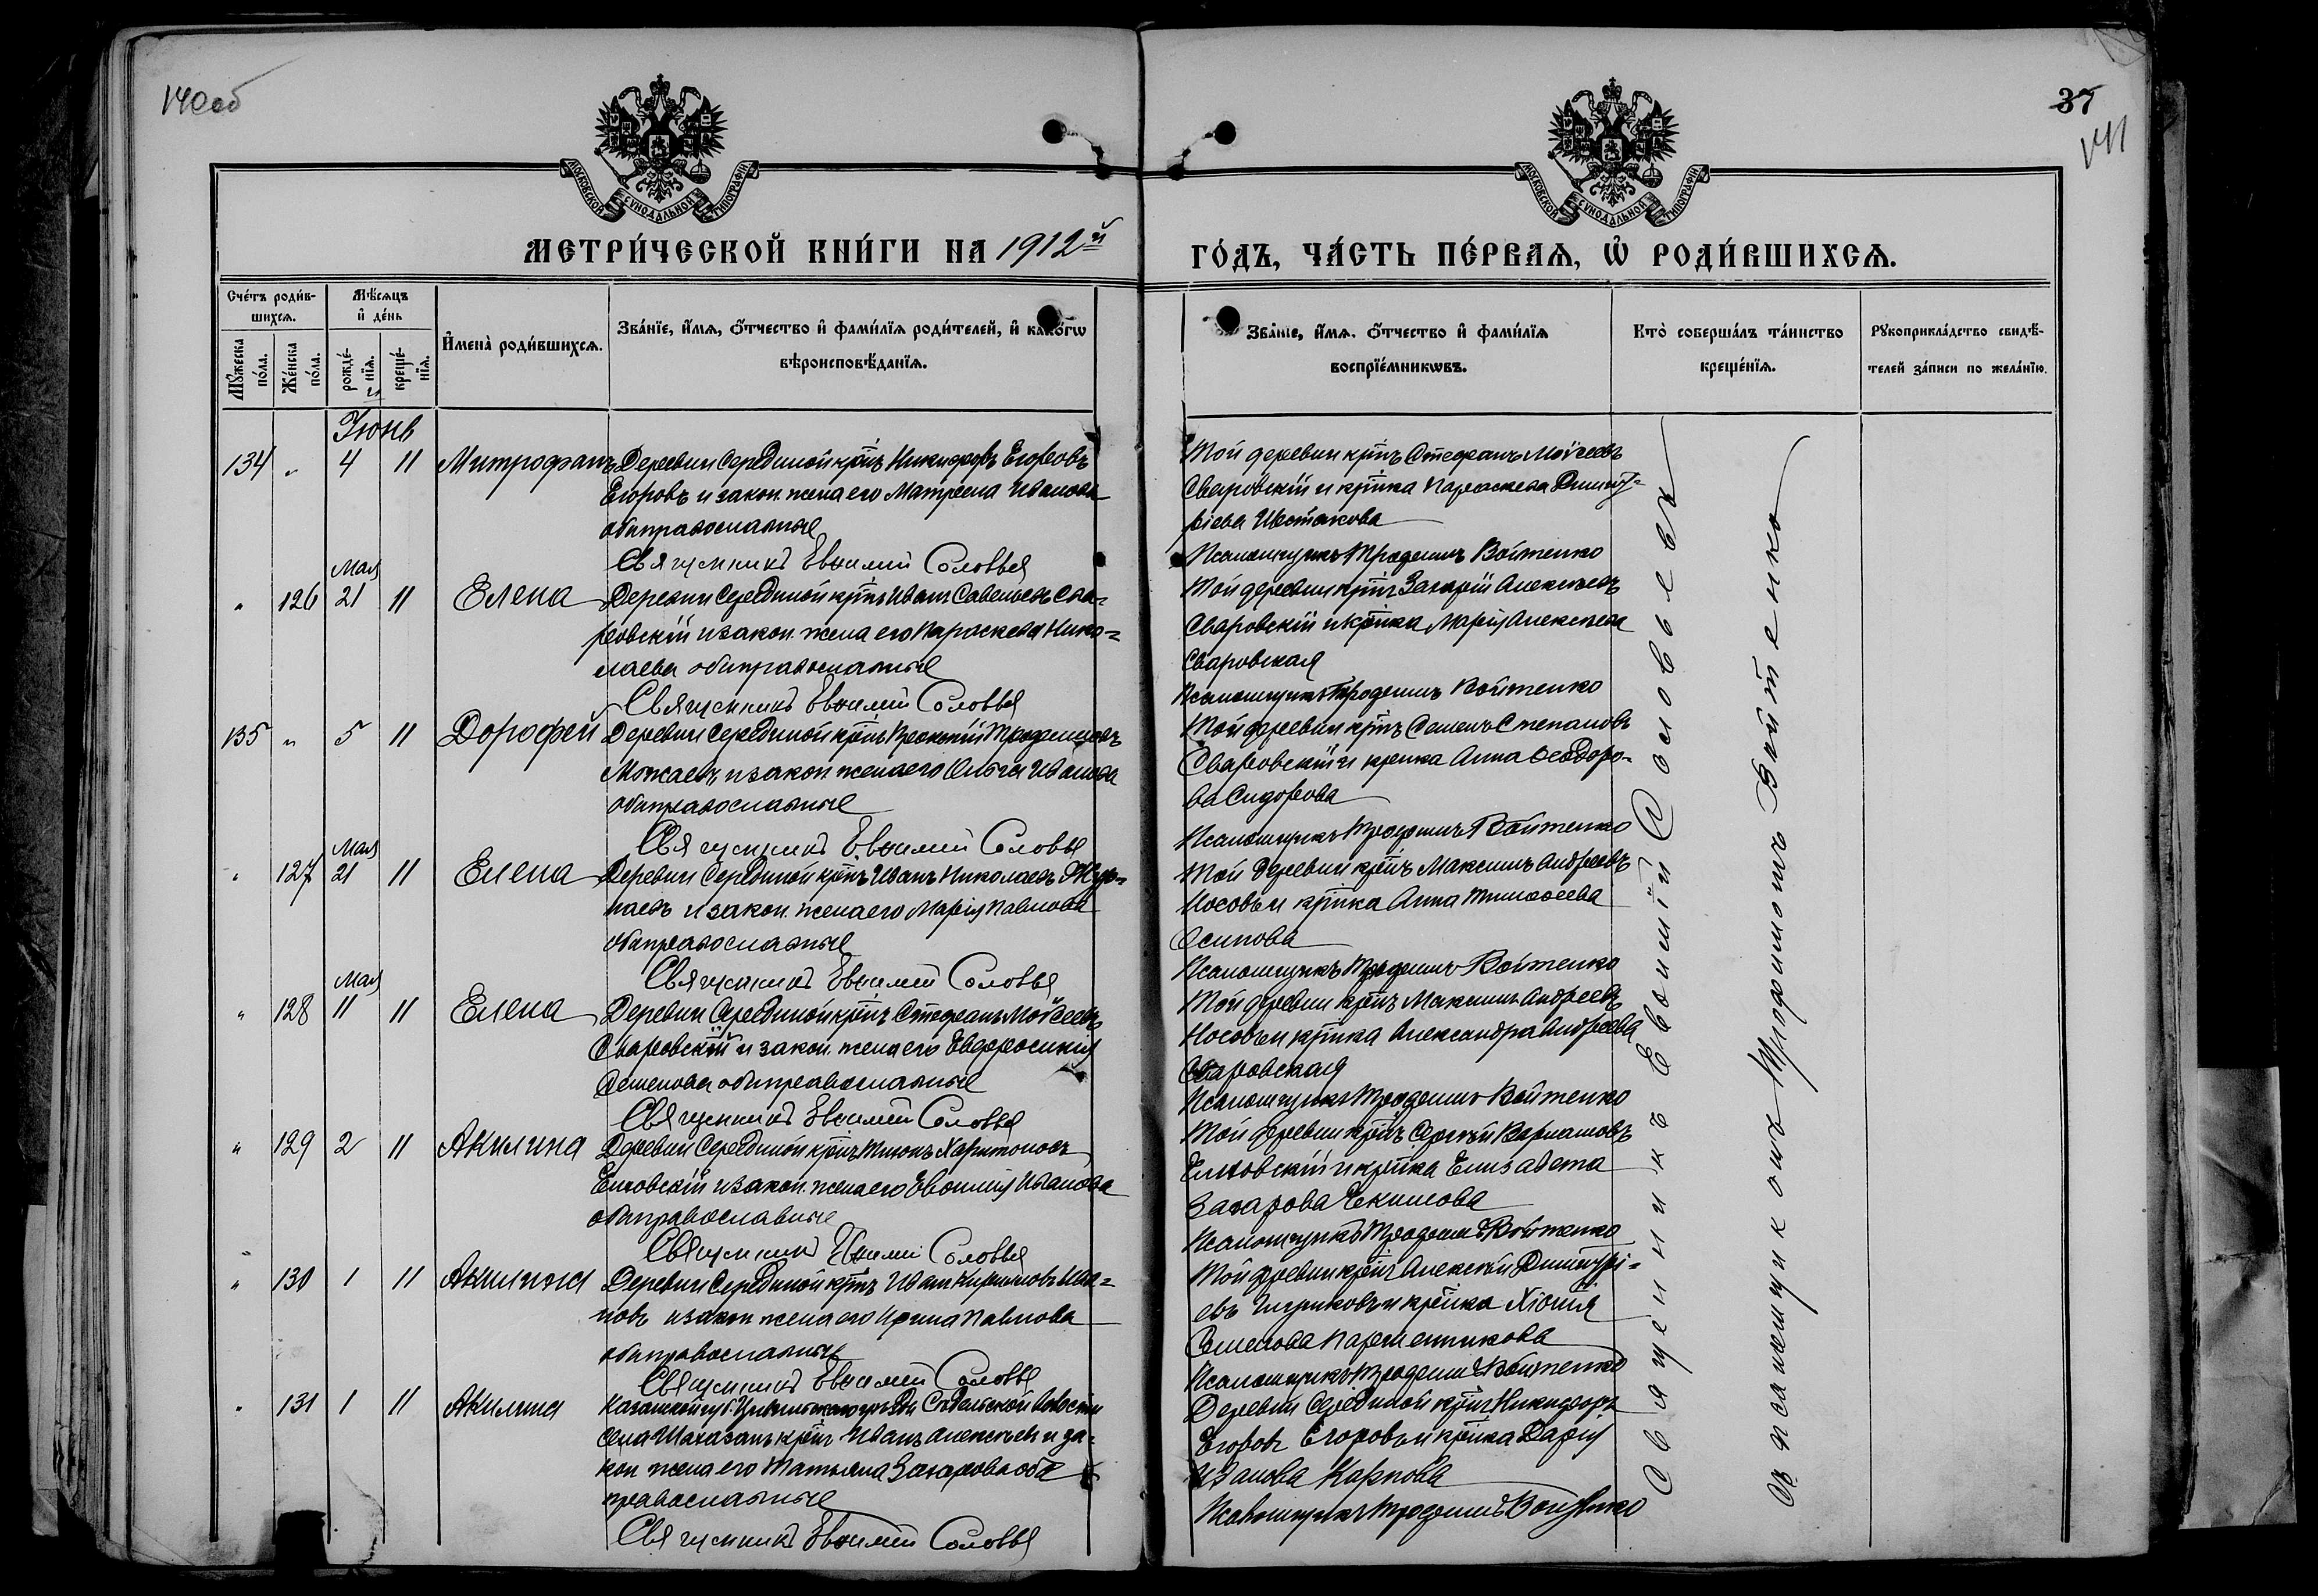 140об
37
141
МОСКОВСКОЙ СѴНОДАЛЬНОЙ ТИПОГРАФІИ
МОСКОВСКОЙ СѴНОДАЛЬНОЙ ТИПОГРАФІИ
МЕТРИ́ЧЕСКОЙ КНИ́ГИ НА 1912й
ГО́ДЪ, ЧА́СТЬ ПЕ́РВАЯ, Ѡ РОДИ́ВШИХСЯ.
Сче́тъ роди́вшихся.
Му́жеска по́ла.
Же́нска по́ла.
Мѣ́сяцъ и де́нь
рожде́нїя.
креще́нїя.
Имена̀ роди́вшихся.
Зва́нїе, и́мя, о́тчество и фами́лїя роди́телей, и како́гѡ
вѣроисповѣ́данїя.
Зва́нїе, и́мя, о́тчество и фами́лїя
воспрїе́мникѡвъ.
Кто̀ соверша́лъ та́инство
креще́нїя.
Рꙋкоприкла́дство свидѣ́-
телей за́писи по жела́нїю.
Іюнь
134 " 4 11 Митрофанъ
Деревни Серединой крѣнъ Никифоръ Егоровъ
Егоровъ и закон. жена его Матрена Иванова
оба православные
Священникъ Евѳимій Соловьевъ
Той деревни крѣнъ Стефанъ Моѵсеевъ
Сваровскій и крѣнка Параскева Димит-
ріева Шестакова
Псаломщикъ Трофимъ Войтенко
" 126 Мая 21 11 Елена
Деревни Серединой крѣнъ Иванъ Савельевъ Сва-
ровскій и закон. жена его Параскева Нико-
лаева оба православные
Священникъ Евѳимій Соловьевъ
Той деревни крѣнъ Захарій Алексѣевъ
Сваровскій и крѣнка Марія Алексѣева
Сваровская
Псаломщикъ Трофимъ Войтенко
135 " 5 11 Дорофей
Деревни Серединой крѣнъ Трофимовъ
Можаевъ и закон. жена его Ольга Иванова
оба православные
Священникъ Евѳимій Соловьевъ
Той деревни крѣнъ Семенъ Степановъ
Сваровскій и крѣнка Анна Ѳеодоро-
ва Сидорова
Псаломщикъ Трофимъ Войтенко
" 127 Мая 21 11 Елена
Деревни Серединой крѣнъ Иванъ Николаевъ
и закон. жена его Марія Павлова
оба православные
Священникъ Евѳимій Соловьевъ
Той деревни крѣнъ Максимъ Андреевъ
Носовъ и крѣнка Анна Тимоѳеева
Осипова
Псаломщикъ Трофимъ Войтенко
" 128 Мая 11 11 Елена
Деревни Серединой крѣнъ Стефанъ Моѵсеевъ
Сваровскій и закон. жена его Евфросинія
Семенова оба православные
Священникъ Евѳимій Соловьевъ
Той деревни крѣнъ Максимъ Андреевъ
Носовъ и крѣнка Александра Андреева
Сваровская
Псаломщикъ Трофимъ Войтенко
" 129 2 11 Акилина
Деревни Серединой крѣнъ Харитоновъ
Елховскій и закон. жена его Евѳимія Иванова
оба православные
Священникъ Евѳимій Соловьевъ
Той деревни крѣнъ Сергѣй Варламовъ
Елховскій и крѣнка Елизавета
Захарова Екимова
Псаломщикъ Трофимъ Войтенко
" 130 1 11 Акилина
Деревни Серединой крѣнъ Иванъ Кириловъ Ива-
новъ и закон. жена его Ирина Павлова
оба православные
Священникъ Евѳимій Соловьевъ
Той деревни крѣнъ Алексѣй Димитрі-
евъ и крѣнка Хіонія
Семенова
Псаломщикъ Трофимъ Войтенко
" 131 1 11 Акилина
Казанской губ. Цивильскаго уѣзда волости
села Шахазанъ крѣнъ Иванъ Алексѣевъ и за-
кон. жена его Татьяна Захарова оба
православные
Священникъ Евѳимій Соловьевъ
Деревни Серединой крѣнъ Никифоръ
Егоровъ Егоровъ и крѣнка Дарія
Иванова Карпова
Псаломщикъ Трофимъ Войтенко
Священникъ Евѳимій Соловьевъ
Съ псаломщикомъ Трофимомъ Войтенко